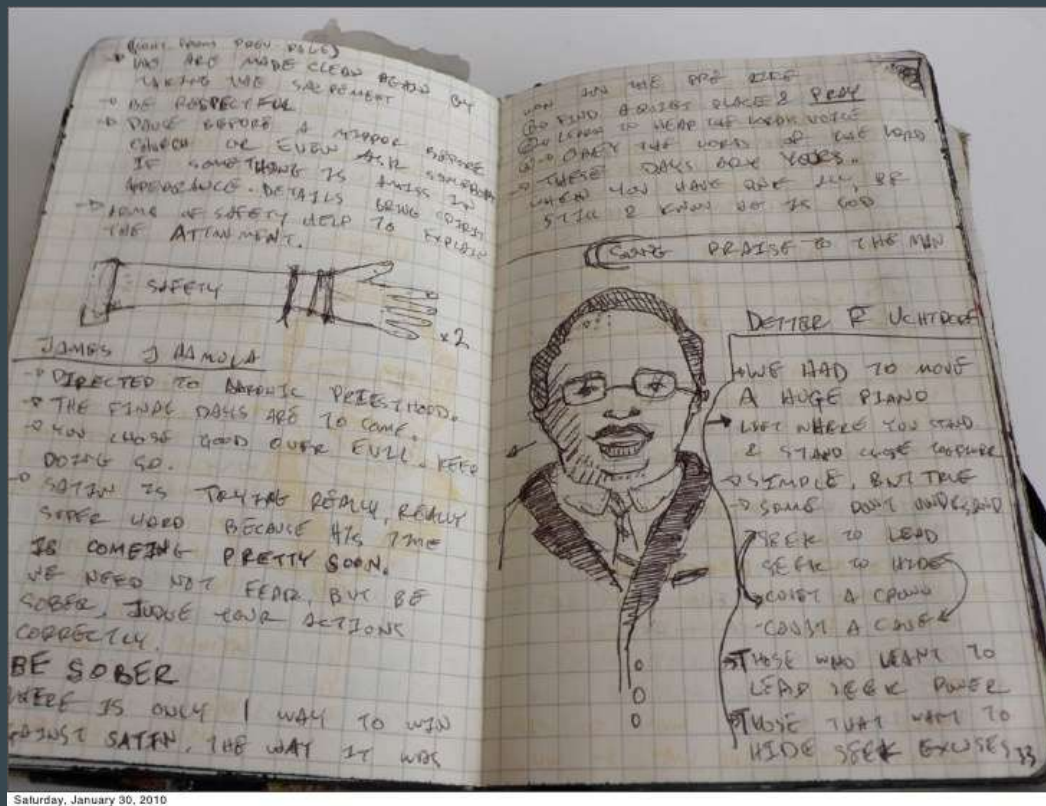 (CONT FROM PREV PAGE)
WE ARE MADE CLEAN AGAIN BY
TAKING THE SACREMENT
BE RESPECTFUL
PAUSE BEFORE A MIRROR BEFORE
CHURCH OR EVEN ASK SOMEBODY
IF SOMETHING IS AMISS IN
APPEARANCE. DETAILS BRING SPIRIT
ARMS OF SAFETY HELP TO EXPLAIN
THE ATTONMENT.
SAFETY
x2
JAMES J HAMULA
DIRECTED TO AARONIC PRIESTHOOD.
THE FINAL DAYS ARE TO COME.
YOU CHOSE GOOD OVER EVIL. KEEP
DOING SO.
SATIN IS TRYING REALLY, REALLY
SUPER HARD BECAUSE HIS TIME
IS COMEING PRETTY SOON.
WE NEED NOT FEAR, BUT BE
SOBER, JUDGE YOUR ACTIONS
CORRECTLY.
BE SOBER
THERE IS ONLY 1 WAY TO WIN
AGAINST SATIN, THE WAY IT WAS
WON IN THE PRE LIFE
FIND A QUIET PLACE & PRAY
LEARN TO HEAR THE LORDS VOICE
OBEY THE WORD OF THE LORD
THESE DAYS ARE YOURS..
WHEN YOU HAVE DONE ALL, BE
STILL & KNOW HE IS GOD
SONG PRAISE TO THE MAN
DEITER F UCHTDORF
WE HAD TO MOVE
A HUGE PIANO
LIFT WHERE YOU STAND
& STAND CLOSE TOGETHER
SIMPLE, BUT TRUE
SOME DON'T UNDERSTAND
SEEK TO LEAD
SEEK TO HIDE
COVET A CROWN
COVET A CAVE
THOSE WHO WANT TO
LEAD SEEK POWER
THOSE THAT WANT TO
HIDE SEEK EXCUSES
33
Saturday, January 30, 2010